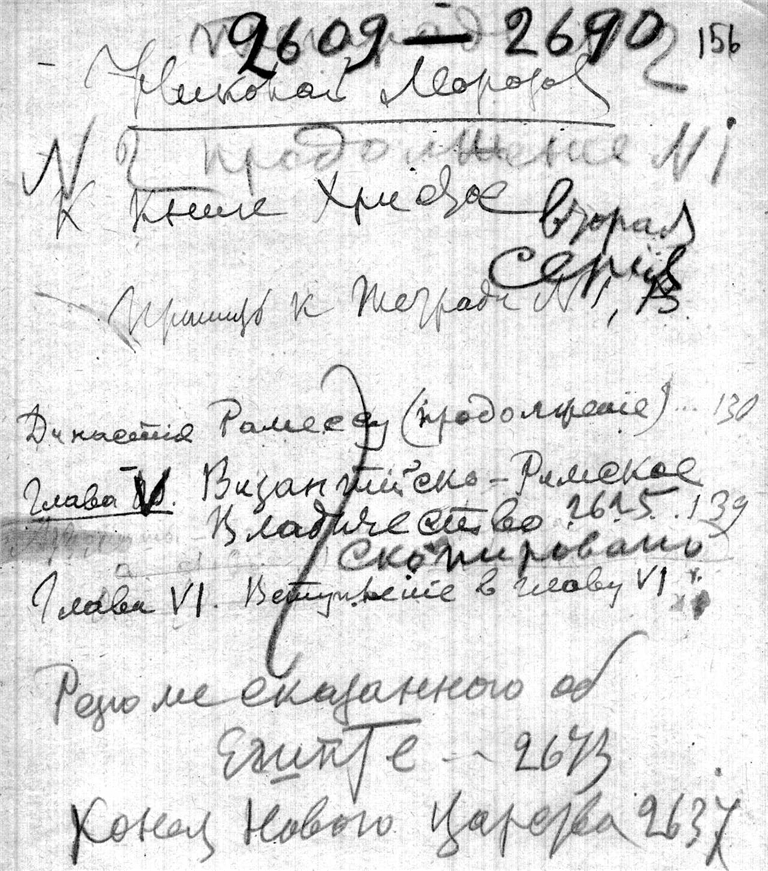 2609 — 2690 156
Николай Морозов
N 2 продолжение N 1
К книге Христос вторая
серия
к тетради N 1,
Династия Рамессу (продолжение) ... 130
Глава V. Византийско-Римское
Владычество 2625 . 139
скопировано
Глава VI. Вступление в главу VI
Резюме сказанного об
Египте -- 2673
Конец Нового Царства 2637